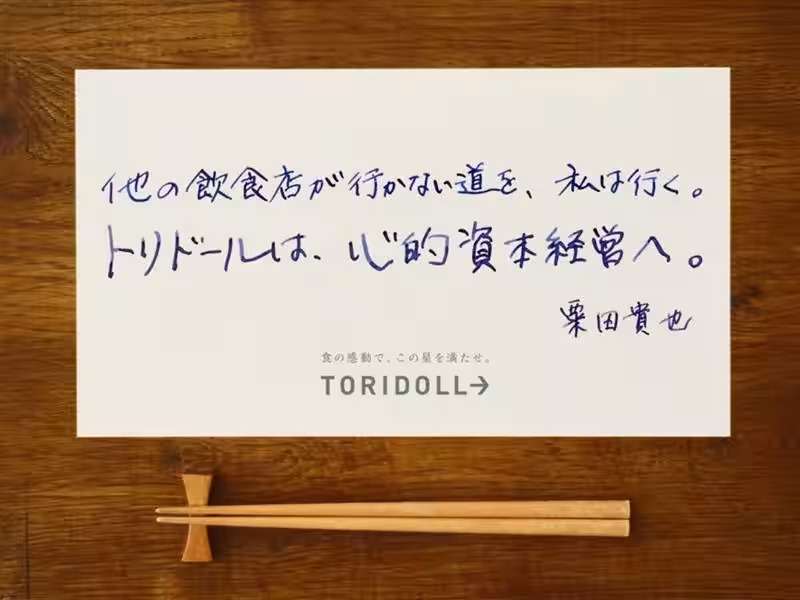 他の飲食店が行かない道を、私は行く。
トリドールは、心的資本経営へ。
粟田貴也
食の感動で、この星を満たせ。
TORIDOLL→